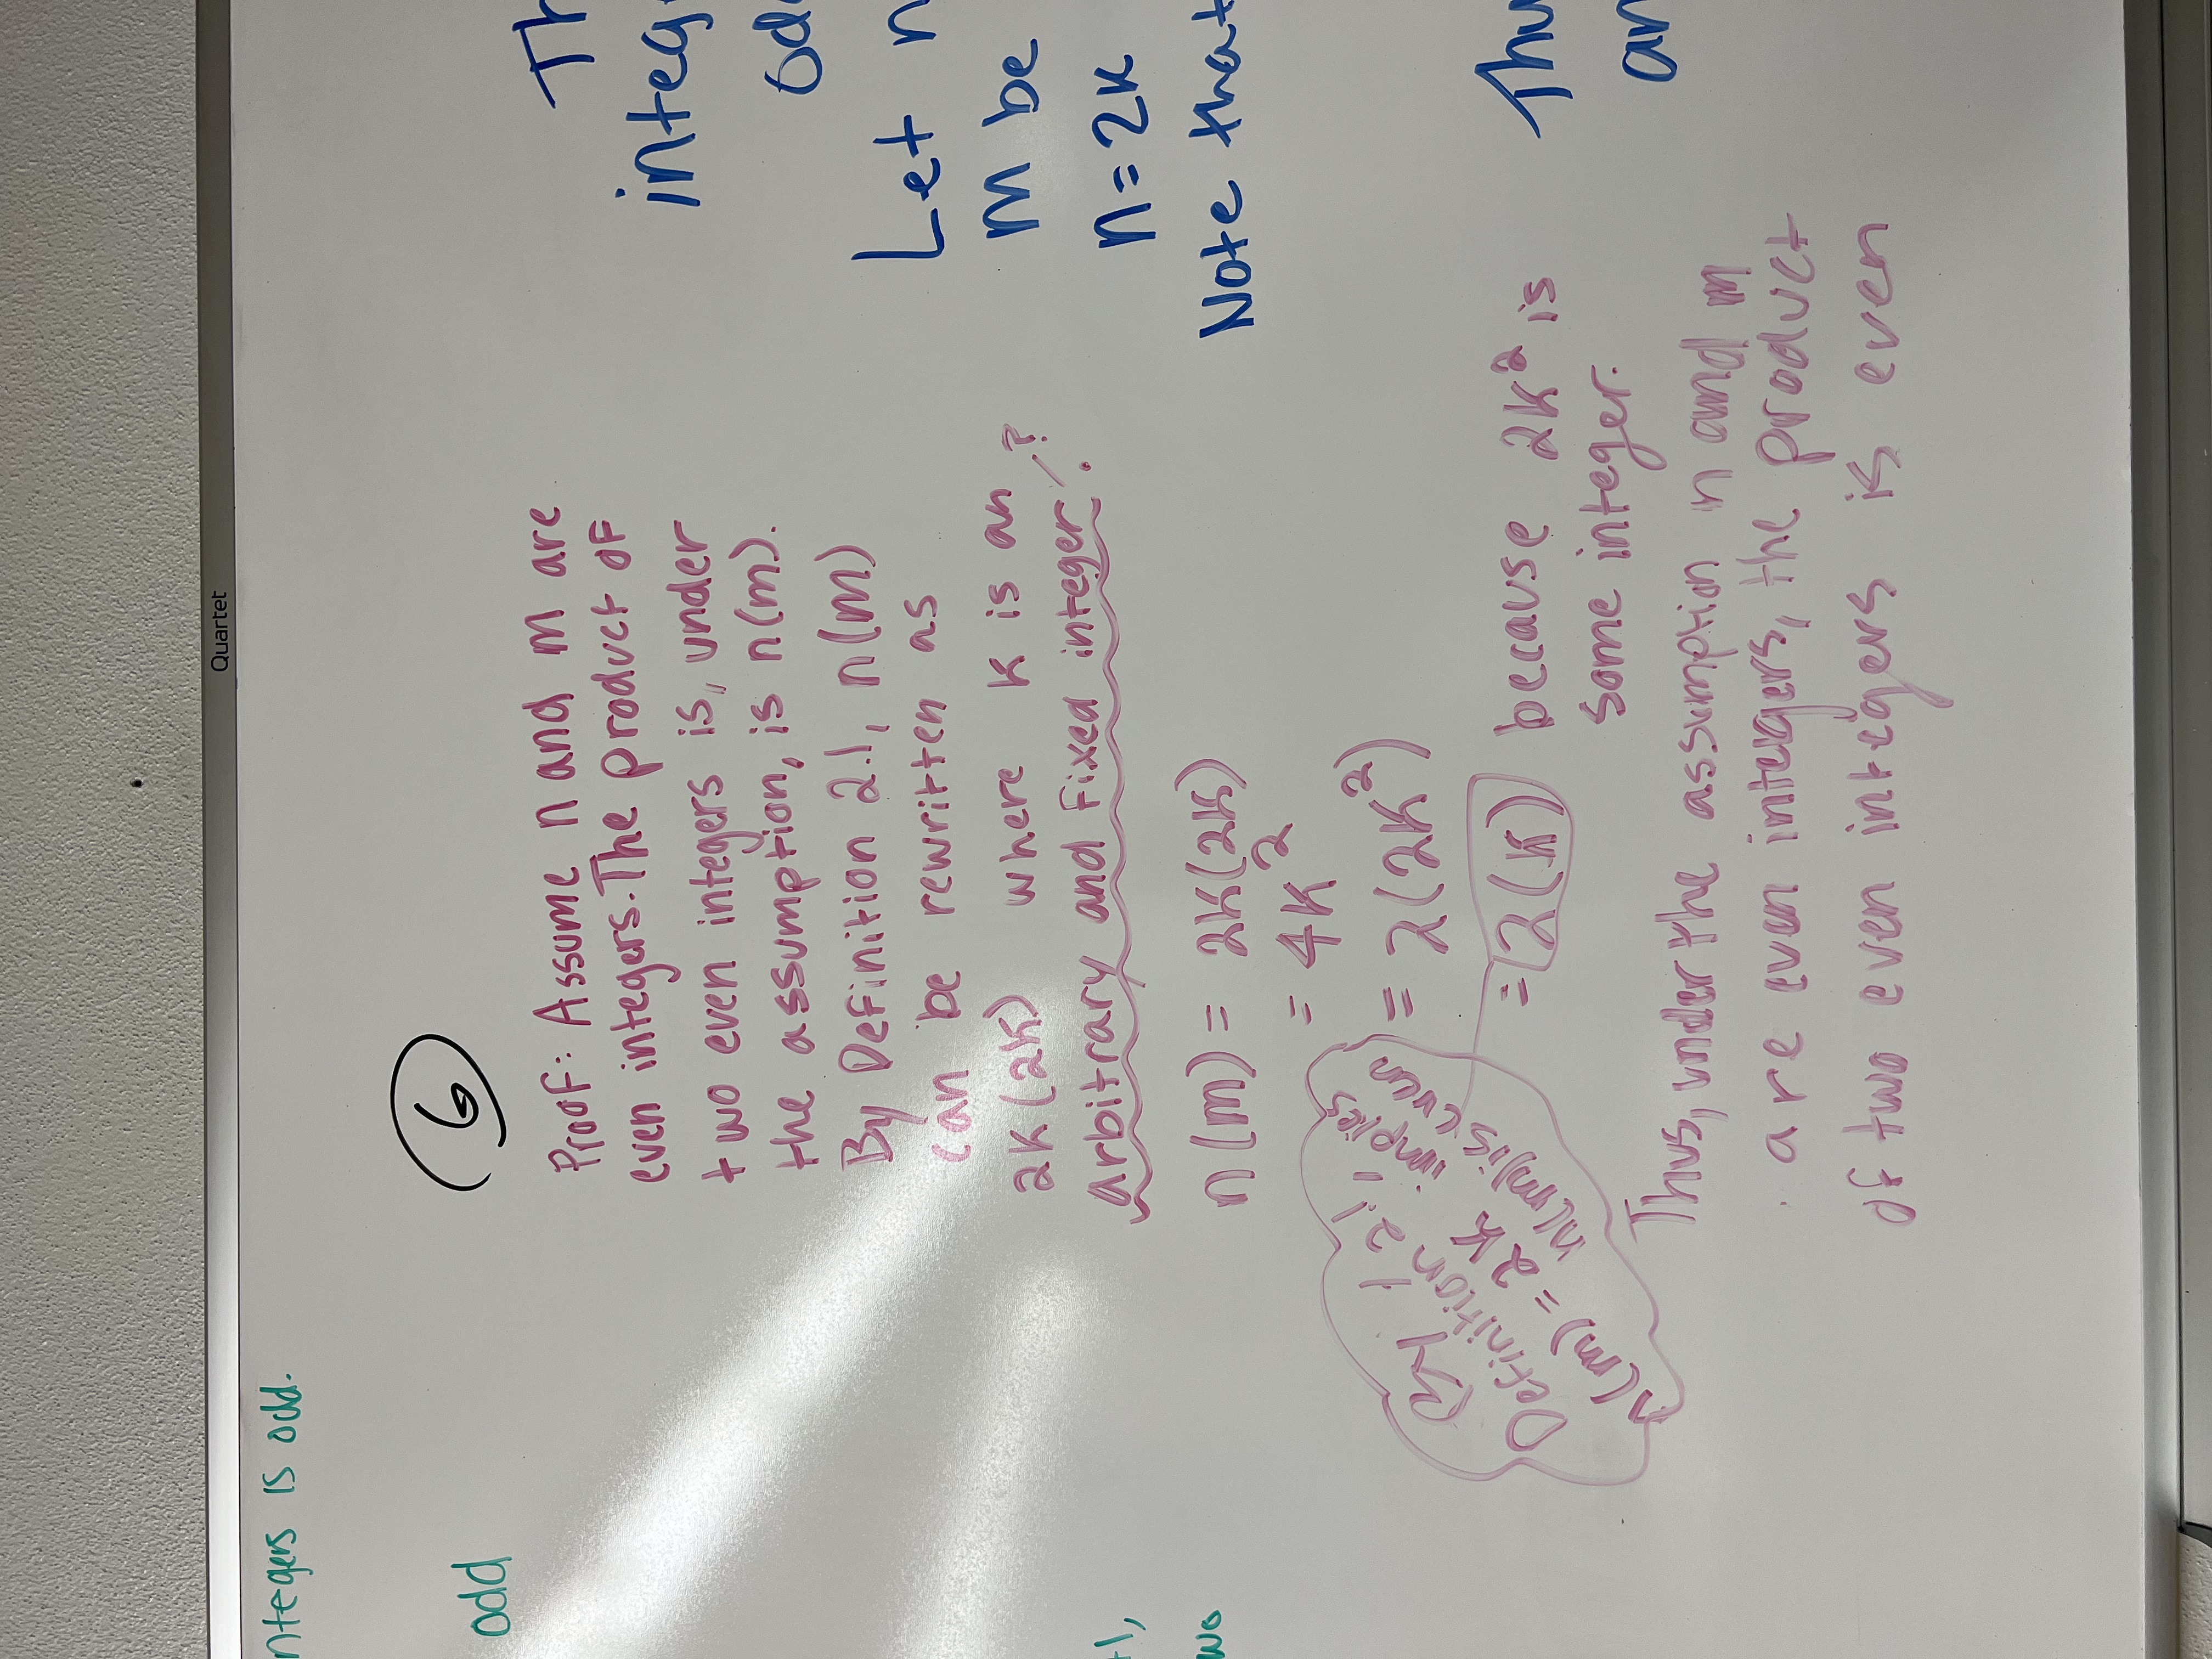 Quartet
ntegers is odd.
odd
+1,
wo
6
Proof: Assume n and m are
even integers. The product of
two even integers is, under
the assumption, is n(m).
By Definition 2.1, n(m)
can be rewritten as
2k(2k) where k is an
arbitrary and fixed integer. ?
n(m) = 2k(2k)
= 4k²
= 2(2k²)
= 2(k) because 2k² is
some integer.
By
Definition 2.1,
n(m) = 2k implies
n(m) is even
Thus, under the assumption n and m
are even intergers, the product
of two even integers is even
Th
integ
od
Let n
m be
n=2k
Note that
Thu
an